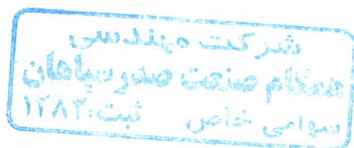 شرکت مهندسی
همگام صنعت صدر سپاهان
سهامی خاص ثبت: ۱۲۸۲